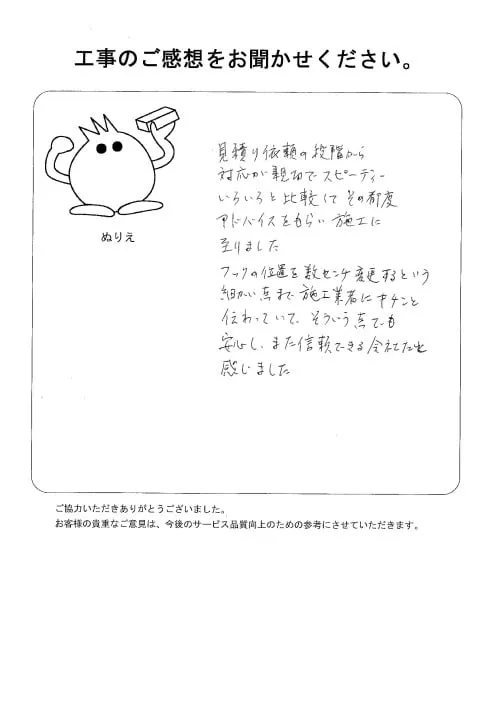 工事のご感想をお聞かせください。
ぬりえ
見積り依頼の段階から
対応が親切でスピーディー
いろいろと比較してその都度
アドバイスをもらい施工に
至りました
フックの位置を数センチ変更するという
細かい点まで施工業者にキチンと
伝わっていて、そういう点でも
安心し、また信頼できる会社だと
感じました
ご協力いただきありがとうございました。
お客様の貴重なご意見は、今後のサービス品質向上のための参考にさせていただきます。